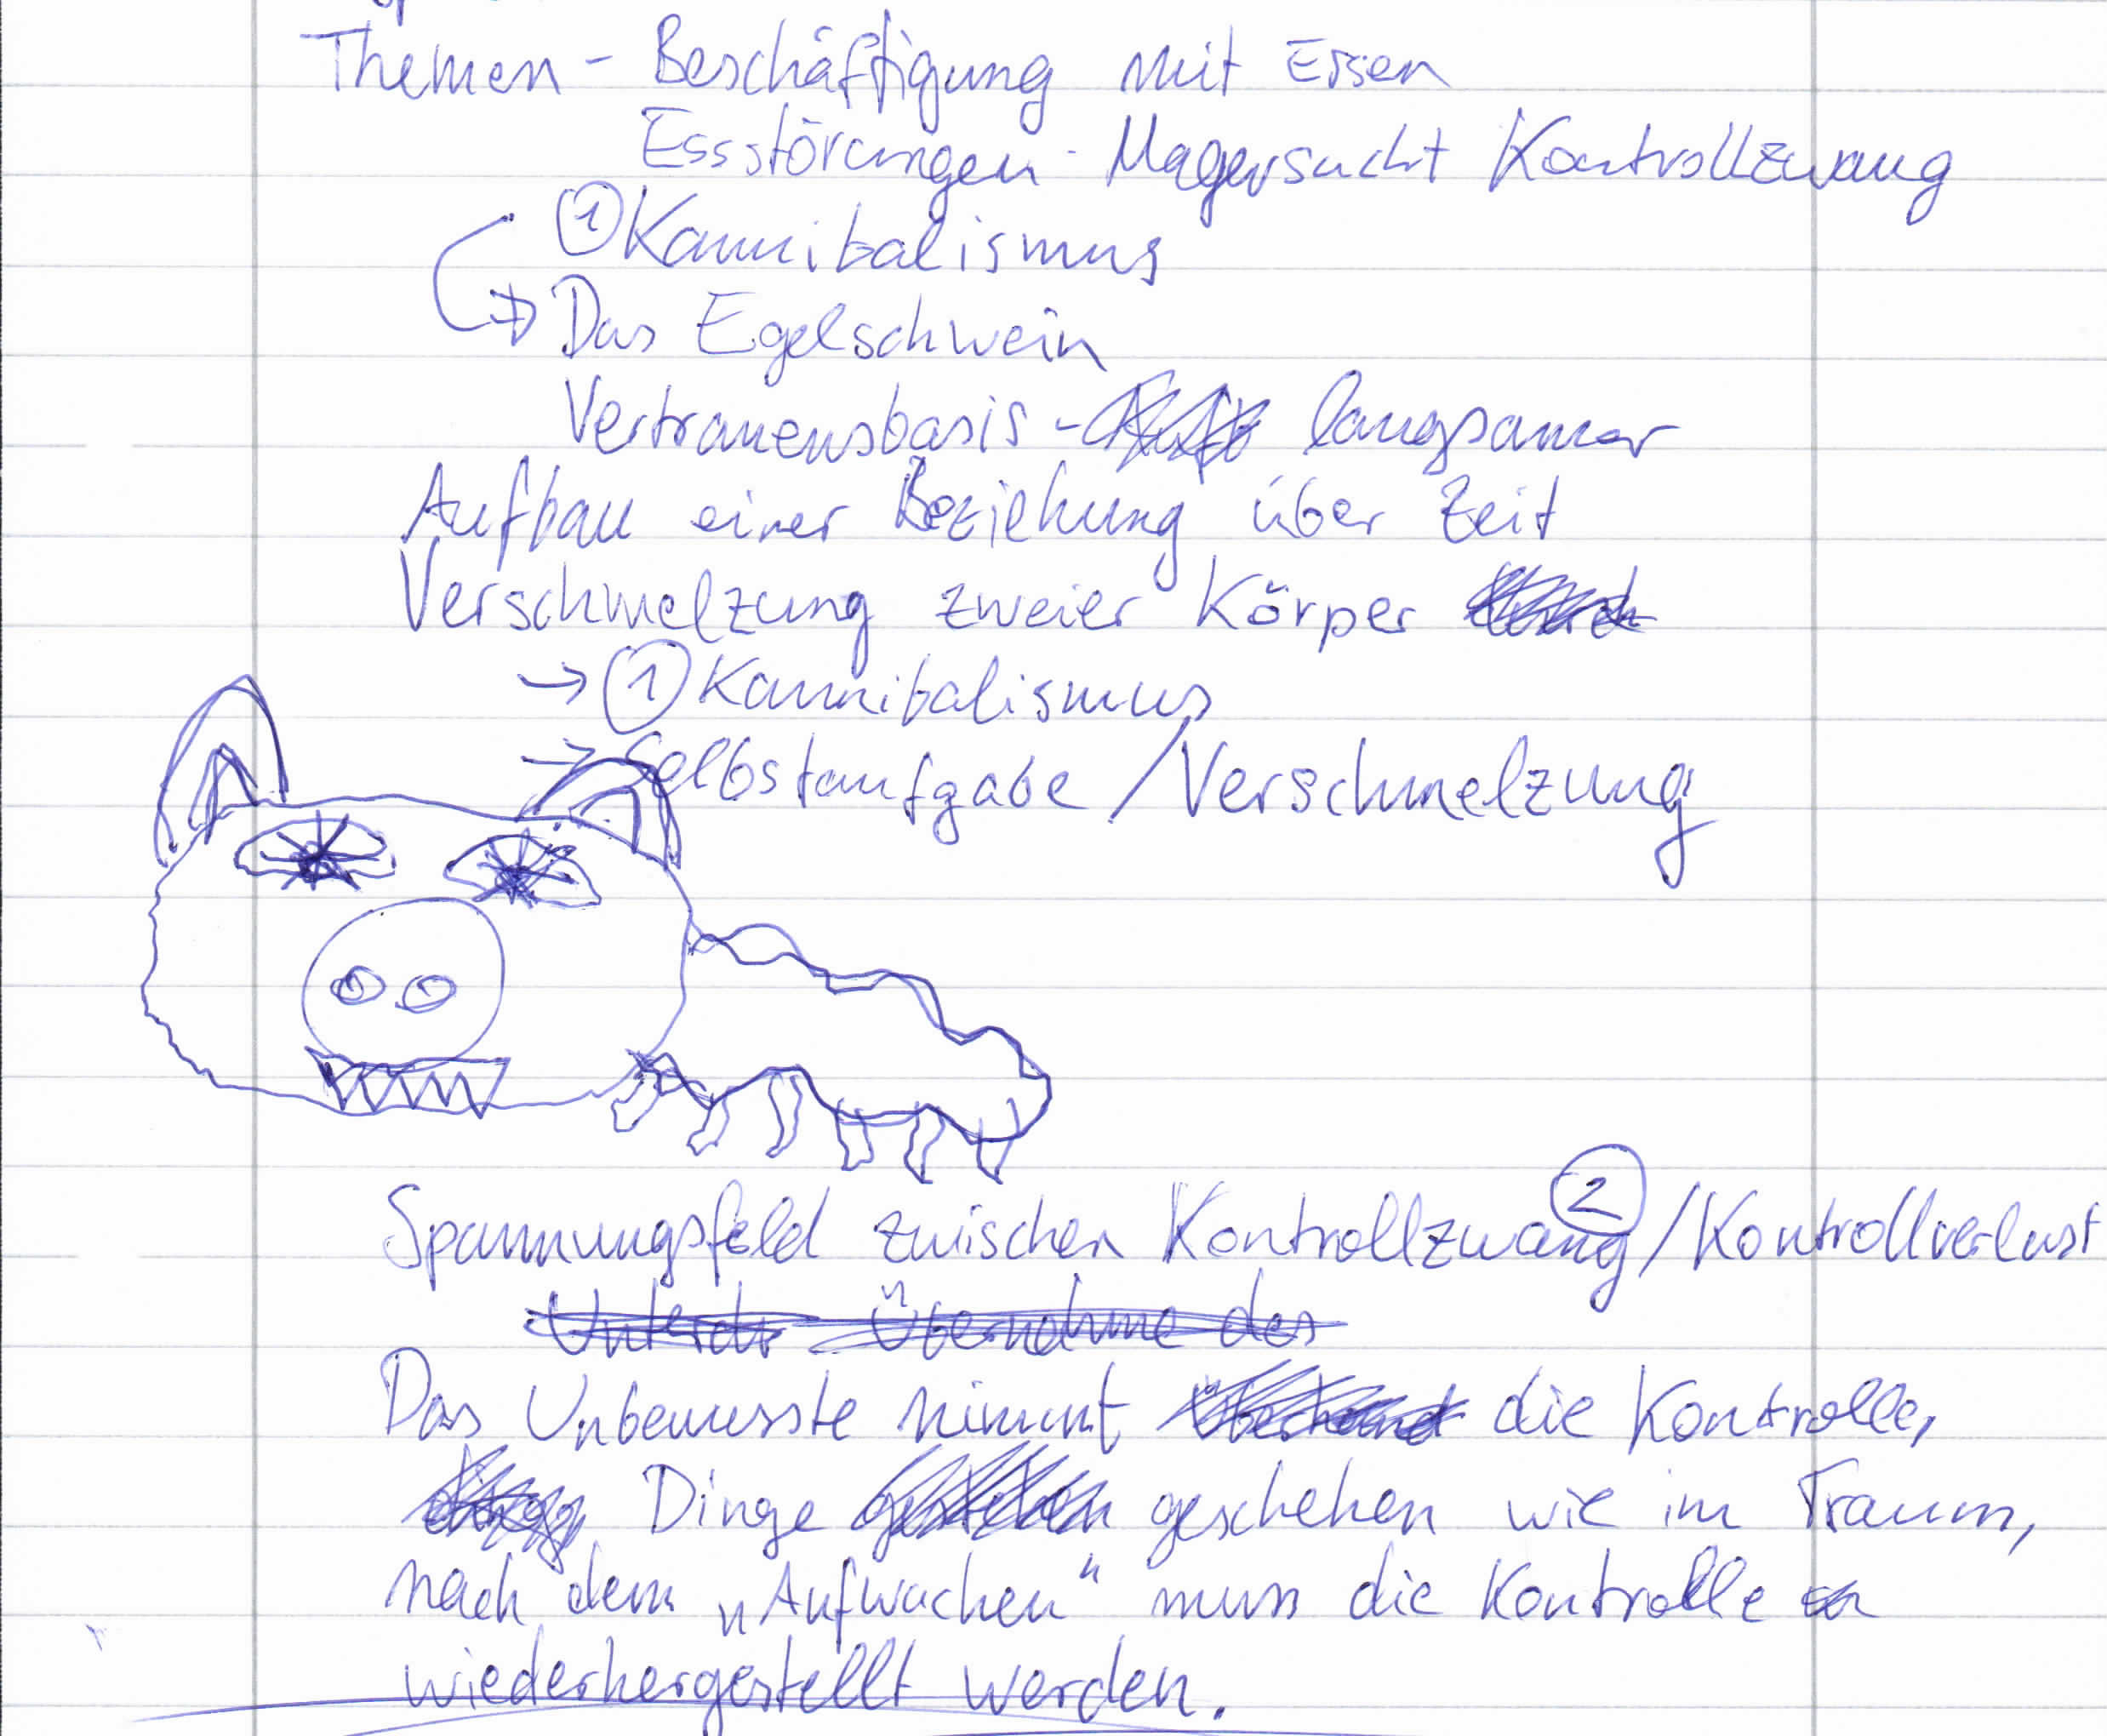 Themen - Beschäftigung mit Essen
Essstörungen - Magersucht Kontrollzwang
① Kannibalismus
→ Das Egelschwein
Vertrauensbasis - langsamer
Aufbau einer Beziehung über Zeit
Verschmelzung zweier Körper
→ ① Kannibalismus
→ Selbstaufgabe / Verschmelzung
Spannungsfeld zwischen Kontrollzwang ② / Kontrollverlust
Übernahme des
Das Unbewusste nimmt die Kontrolle,
Dinge geschehen wie im Traum,
nach dem „Aufwachen“ muss die Kontrolle
wiederhergestellt werden.